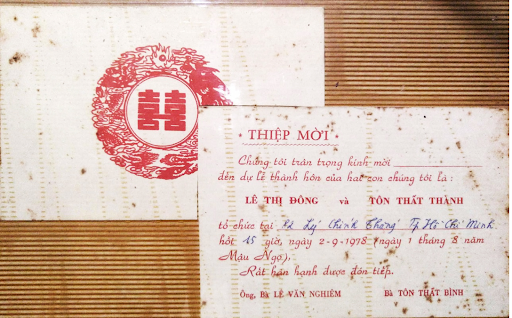 囍
THIỆP MỜI
Chúng tôi trân trọng kính mời
đến dự lễ thành hôn của hai con chúng tôi là :
LÊ THỊ ĐÔNG và TÔN THẤT THÀNH
tổ chức tại Lý Chính Thắng Tp Hồ Chí Minh
hồi 15 giờ, ngày 2-9-1978 (ngày 1 tháng 8 năm
Mậu Ngọ),
Rất hân hạnh được đón tiếp.
Ông, Bà LÊ VĂN NGHIÊM Bà TÔN THẤT BÌNH